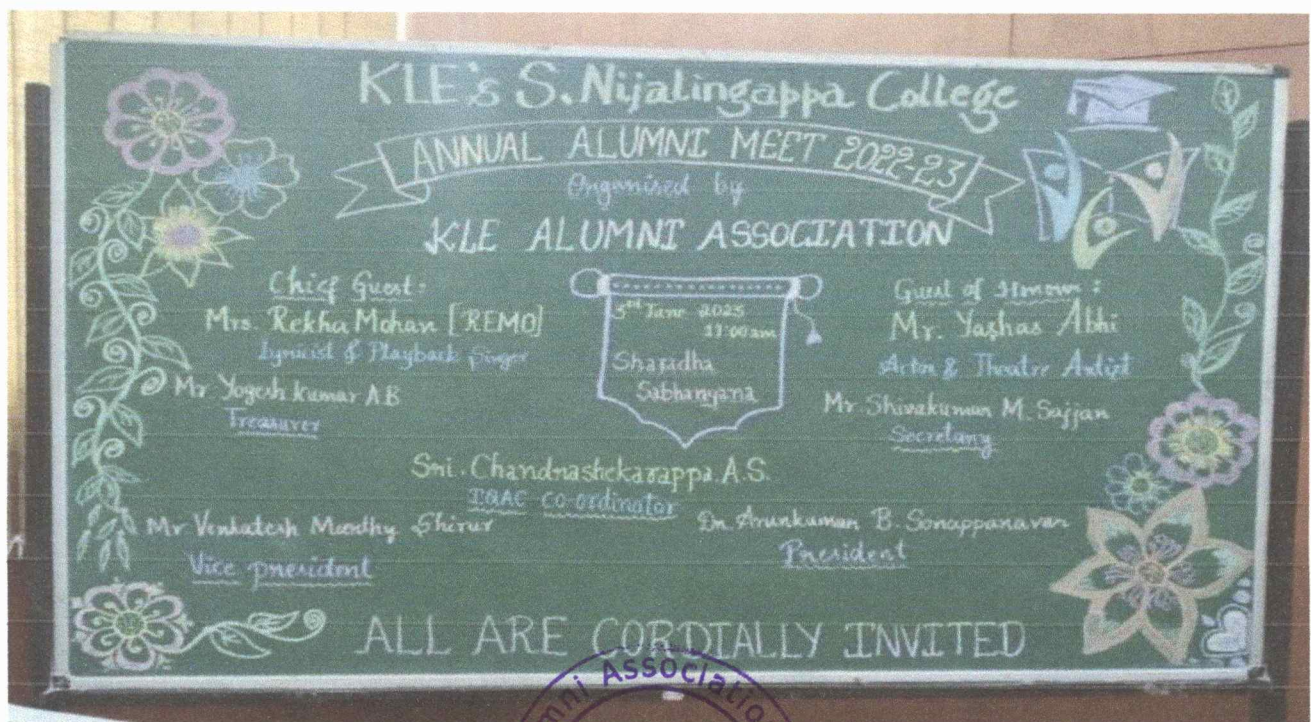 KLE's S. Nijalingappa College
ANNUAL ALUMNI MEET 2022-23
Organised by
KLE ALUMNI ASSOCIATION
Chief Guest:
Mrs. Rekha Mohan [REMO]
Lyricist & Playback Singer
Mr Yogesh kumar A.B
Treasurer
3rd June 2023
11:00am
Sharadha
Sabhangana
Guest of Honour :
Mr. Yashas Abhi
Actor & Theatre Artist
Mr. Shivakumar M. Sajjan
Secretary
Sri. Chandrashekarappa. A.S.
IQAC CO-ordinator
Mr Venkatesh Moodhy Shirur
Vice president
Dr. Arunkumar B. Sonappanavar
President
ALL ARE CORDIALLY INVITED
Association